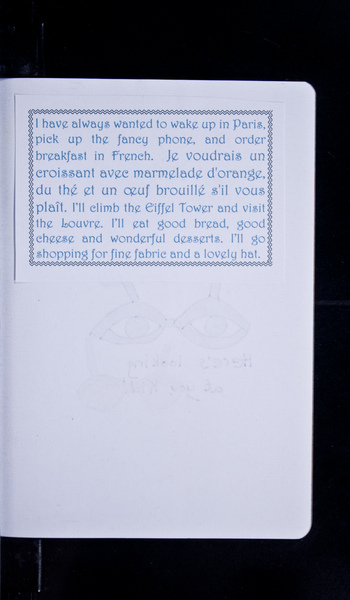 I have always wanted to wake up in Paris,
pick up the fancy phone, and order
breakfast in French. Je voudrais un
croissant avec marmelade d'orange,
du thé et un œuf brouillé s'il vous
plaît. I'll climb the Eiffel Tower and visit
the Louvre. I'll eat good bread, good
cheese and wonderful desserts. I'll go
shopping for fine fabric and a lovely hat.
Here's looking
at you, Kid!